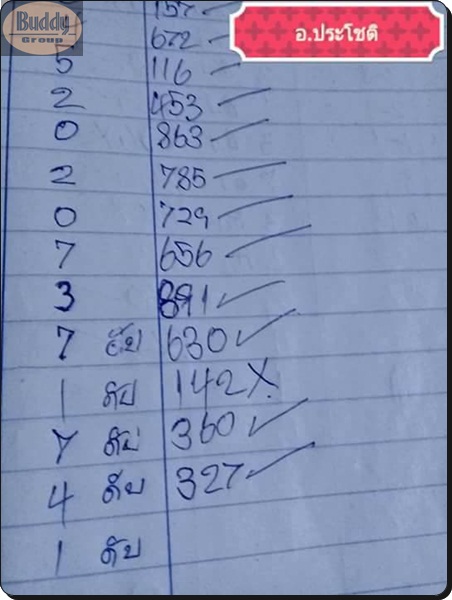 Buddy
Group
อ.ประโชติ
157
672
5 116
2 453
0 863
2 785
0 729
7 656
3 891
7 ดับ 630
1 ดับ 142 X
7 ดับ 360
4 ดับ 327
1 ดับ